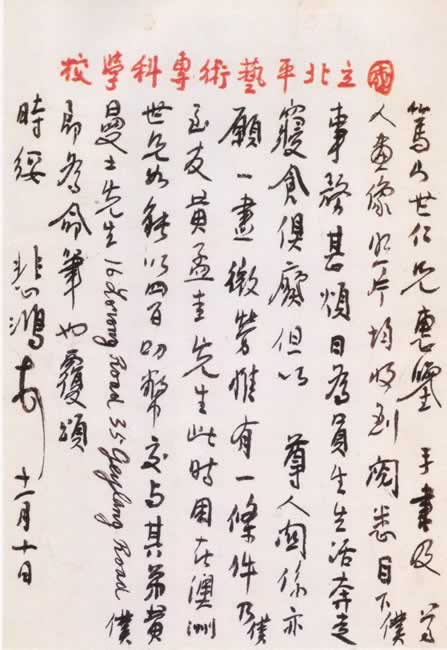 國立北平藝術專科學校
篤山世仁兄惠鑒 手書及 尊
人畫像照片均收到閱悉目下僕
事務甚煩日為員生生活奔走
寢食俱廢但以 尊人關係亦
願一盡微勞惟有一條件乃僕
至友黃孟圭先生此時困在澳洲
世兄如能以四百叻幣交與其弟黃
曼士先生 16 Lorong Road 35 Geylang Road 僕
即為命筆也覆頌
時綏 悲鴻 十一月十日